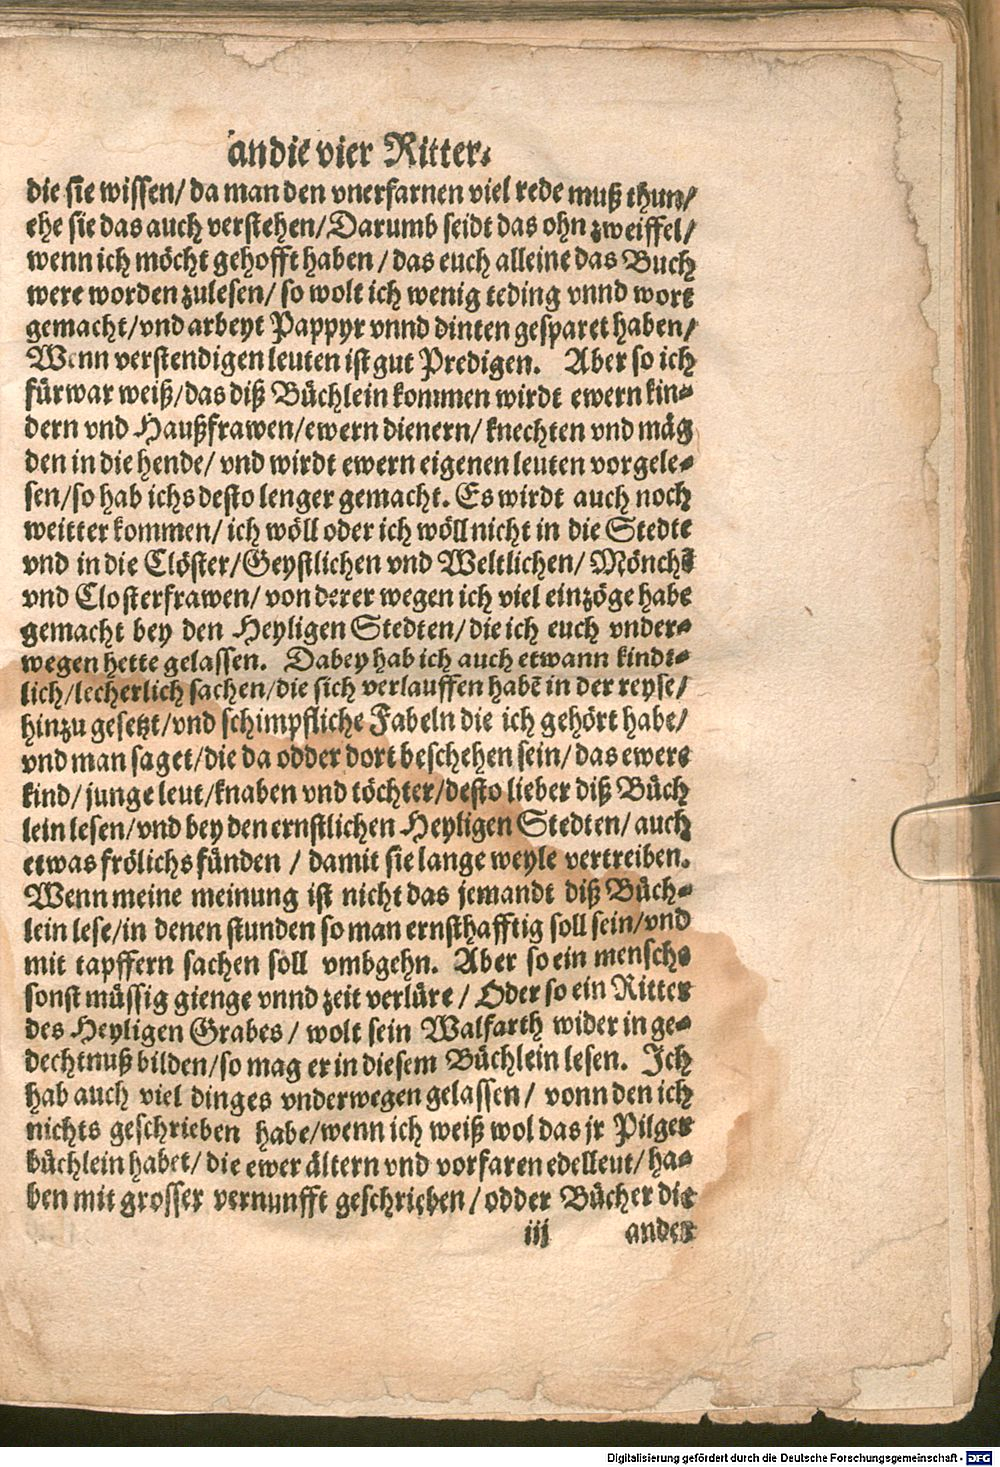 an die vier Ritter.
die sie wissen/ da man den vnerfarnen viel rede muß thun/
ehe sie das auch verstehen/Darumb seidt das ohn zweiffel/
wenn ich möcht gehofft haben / das euch alleine das Buch
were worden zulesen/ so wolt ich wenig teding vnnd wort
gemacht/vnd arbeyt Pappyr vnnd dinten gesparet haben/
Wenn verstendigen leuten ist gut Predigen. Aber so ich
fürwar weiß/das diß Büchlein kommen wirdt ewern kin-
dern vnd Haußfrawen/ewern dienern/ knechten vnd mäg
den in die hende/ vnd wirdt ewern eigenen leuten vorgele-
sen/so hab ichs desto lenger gemacht. Es wirdt auch noch
weitter kommen/ ich wöll oder ich wöll nicht in die Stedte
vnd in die Clöster/Geystlichen vnd Weltlichen/ Mönchē
vnd Closterfrawen/ von derer wegen ich viel einzöge habe
gemacht bey den Heyligen Stedten/die ich euch vnder-
wegen hette gelassen. Dabey hab ich auch etwann kindt-
lich/lecherlich sachen/die sich verlauffen habē in der reyse/
hinzu gesetzt/vnd schimpfliche Fabeln die ich gehört habe/
vnd man saget/die da odder dort beschehen sein/das ewere
kind/junge leut/knaben vnd töchter/desto lieber diß Büch
lein lesen/vnd bey den ernstlichen Heyligen Stedten/ auch
etwas frölichs fünden / damit sie lange weyle vertreiben.
Wenn meine meinung ist nicht das jemandt diß Büch-
lein lese/in denen stunden so man ernsthafftig soll sein/vnd
mit tapffern sachen soll vmbgehn. Aber so ein mensche
sonst müssig gienge vnnd zeit verlüre / Oder so ein Ritter
des Heyligen Grabes/ wolt sein Walfarth wider in ge-
dechtnuß bilden/so mag er in diesem Büchlein lesen. Ich
hab auch viel dinges vnderwegen gelassen/ vonn den ich
nichts geschrieben habe/wenn ich weiß wol das jr Pilger
büchlein habet/ die ewer ältern vnd vorfaren edelleut/ ha-
ben mit grosser vernunfft geschrieben/odder Bücher die
iij ander
Digitalisierung gefördert durch die Deutsche Forschungsgemeinschaft - DFG